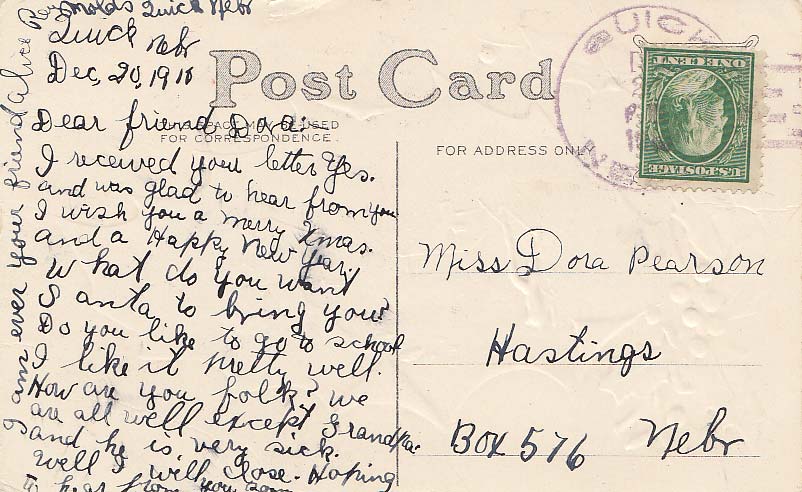 Quick Nebr
Quick Nebr
Dec, 20, 1910
Post Card
FOR CORRESPONDENCE
Dear friend Dora:—
I received your letter Yes.
and was glad to hear from you
I wish you a merry Xmas.
and a Happy New Year.
What do you want
Santa to bring you?
Do you like to go to school
I like it pretty well.
How are you folk? We
are all well except Grandpa
and he is very sick.
Well I will close. Hoping
to hear from you soon
I am ever your friend Alice Reynolds
FOR ADDRESS ONLY
QUICK
NEB
U.S. POSTAGE
ONE CENT
Miss Dora Pearson
Hastings
Box 576 Nebr